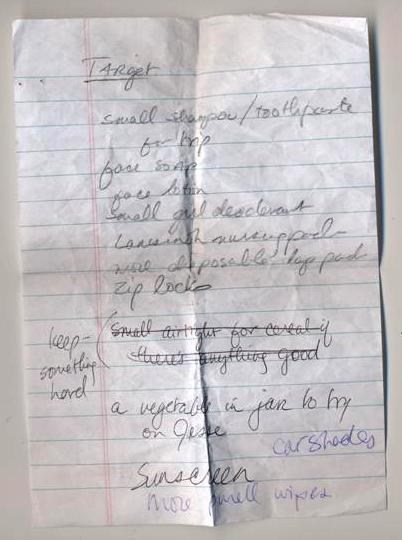 Target
small shampoo/toothpaste
for trip
face soap
face lotion
small gel deoderant
Lansinoh nursing pads
more disposable pads
zip locks
keep-
something
hard
small airtight for cereal if
there's anything good
a vegetable in jar to try
on Jesse
car shades
Sunscreen
more small wipes